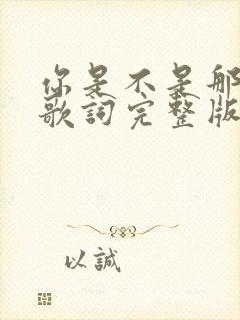 你是不是那
歌詞完整版
以誠